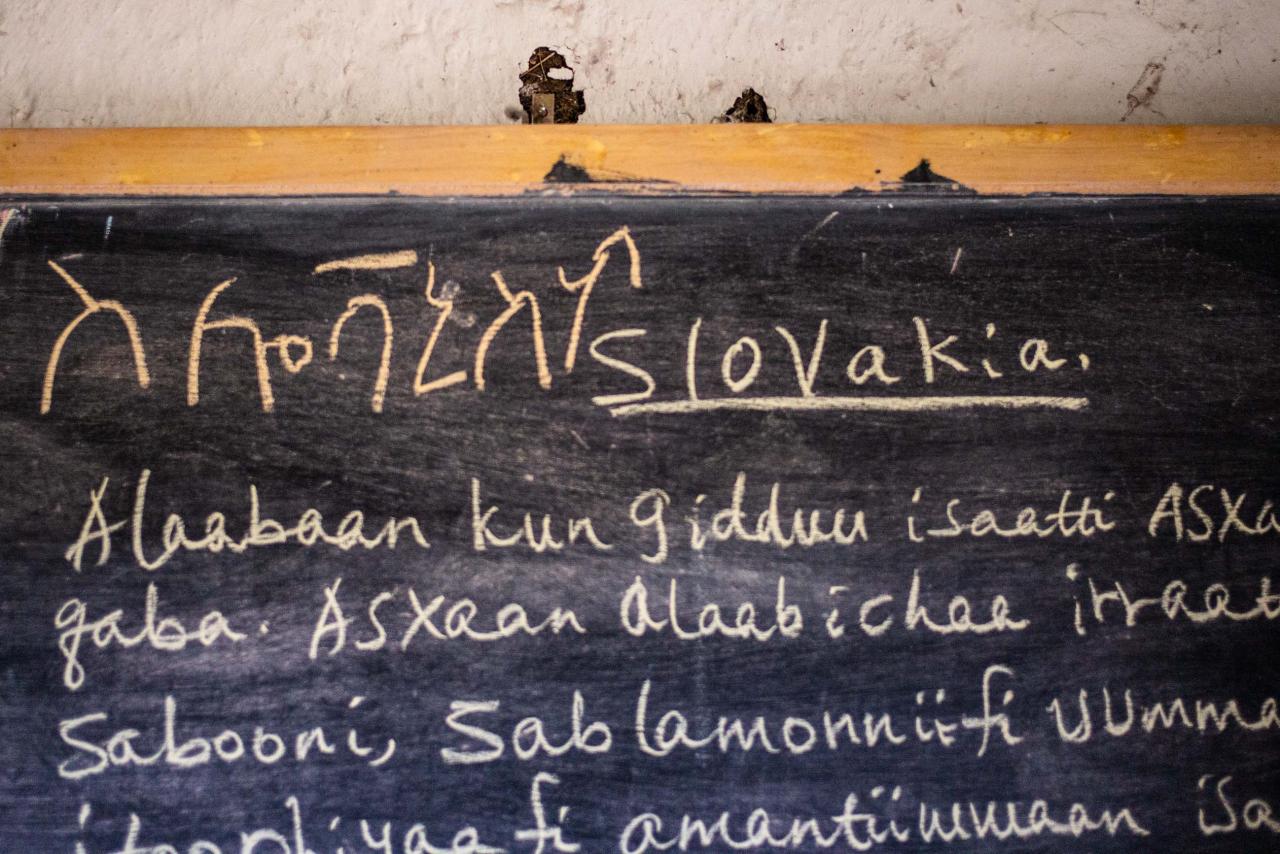 Slovakia.
Alaabaan kun gidduu isaatti ASXa
gaba. ASXaan alaabichaa irraat
Sabooni, Sablamonniifi uumma
itoophiyaafi amantiiwwaan isa